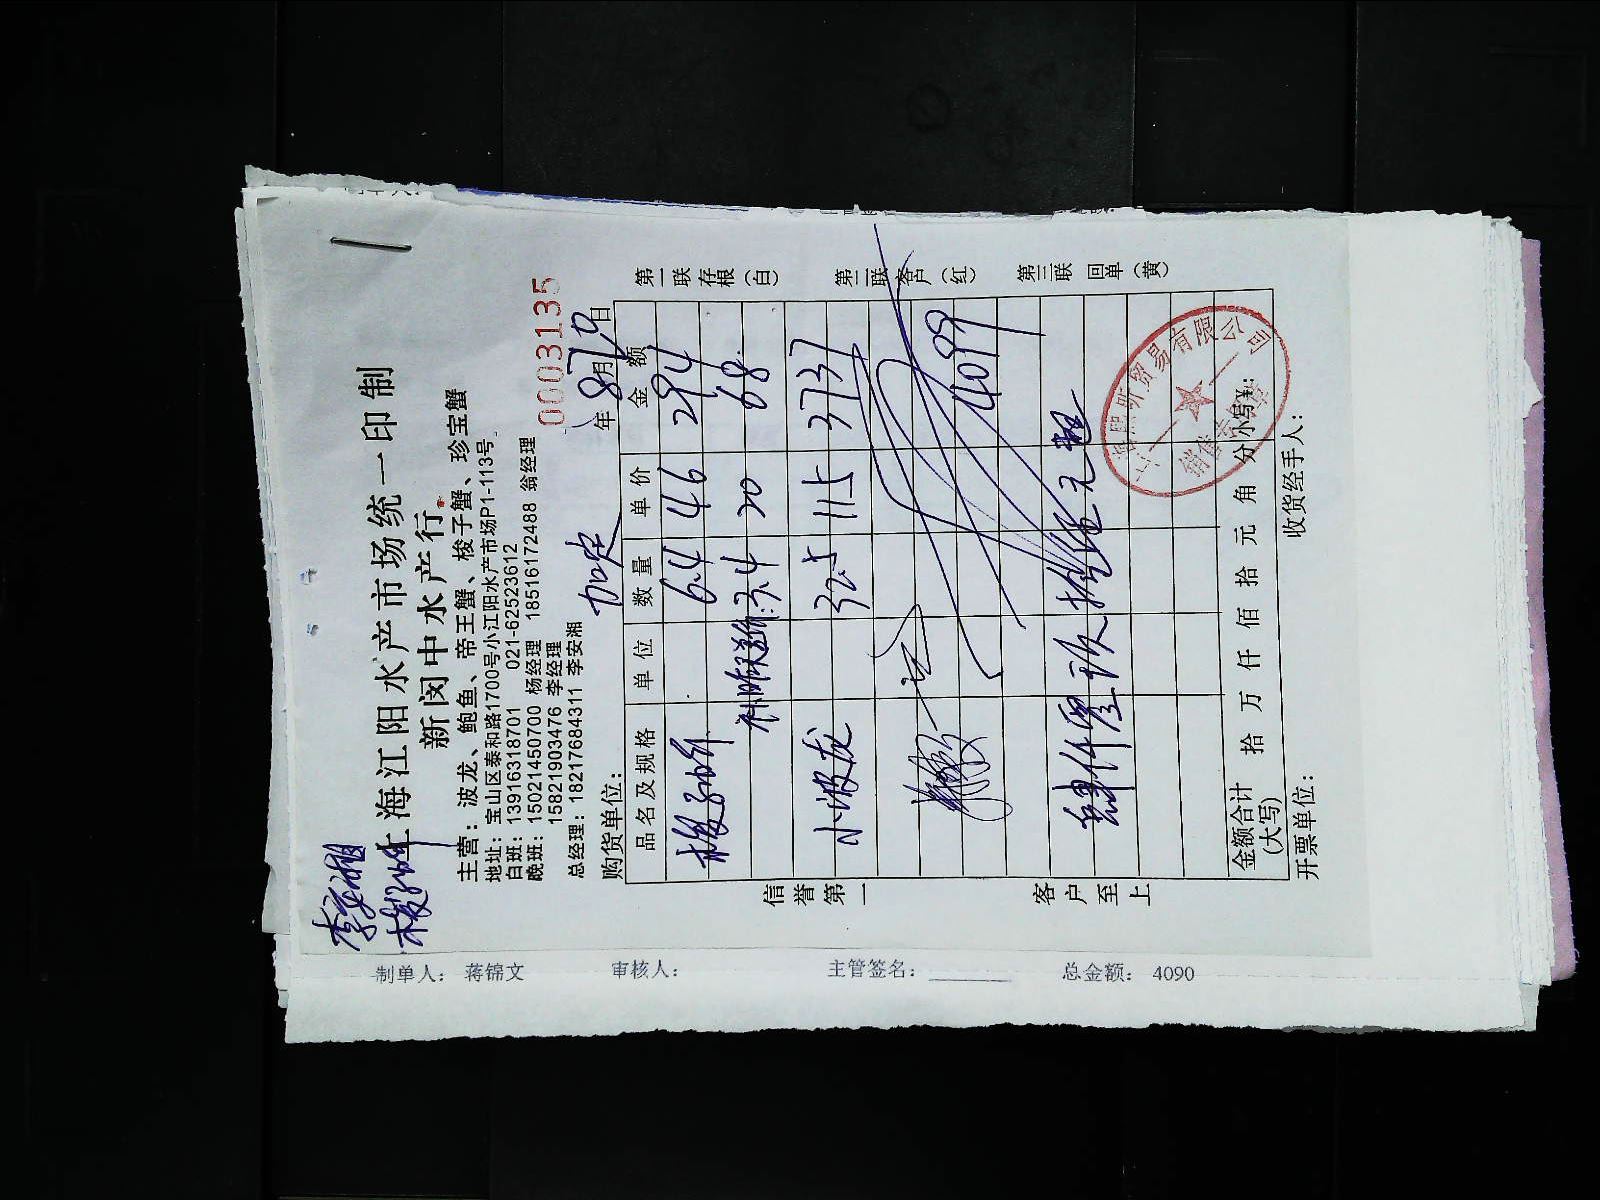 李安湘
梭子蟹
上海江阳水产市场统一印制
新闵中水产行
主营：波龙、鲍鱼、帝王蟹、梭子蟹、珍宝蟹
地址：宝山区泰和路1700号小江阳水产市场P1-113号
白班：13916318701 021-62523612
晚班：15021450700 杨经理 18516172488 翁经理
15821903476 李经理
总经理：18217684311 李安湘
0003135
购货单位： 加定 年 8 月 19 日
品名及规格 单位 数量 单价 金额
梭子蟹 6.4 46 294
补昨天差价: 3.4 20 68.
小波龙 32.5 115 3737
4099
肆仟零玖拾玖元整
金额合计
(大写)
拾 万 仟 佰 拾 元 角 分 小写¥:
开票单位： 收货经手人：
第一联 存根（白）
第二联 客户（红）
第三联 回单（黄）
信誉第一
客户至上
贸易有限公司
销售专
制单人： 蒋锦文 审核人： 主管签名： 总金额： 4090